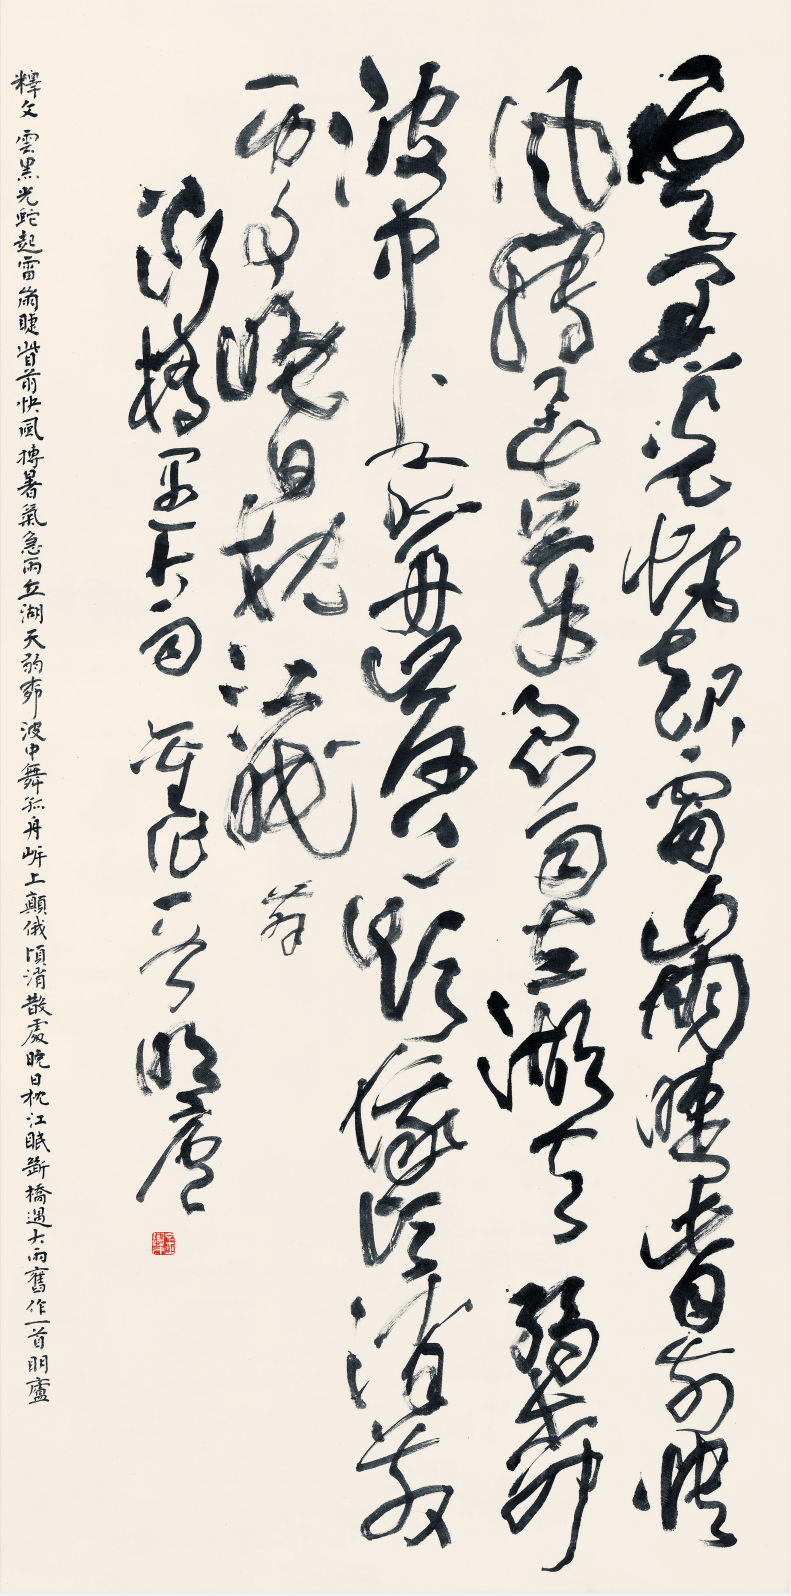 雲黑光蛇起雷崩睫眥前快
風摶暑氣急雨立湖天弱柳
波中孤舟岸上顛俄頃消散
處晚日枕江眠 舞
斷橋遇大雨舊作一首明廬
釋文 雲黑光蛇起雷崩睫眥前快風摶暑氣急雨立湖天弱柳波中舞孤舟岸上顛俄頃消散處晚日枕江眠斷橋遇大雨舊作一首明廬